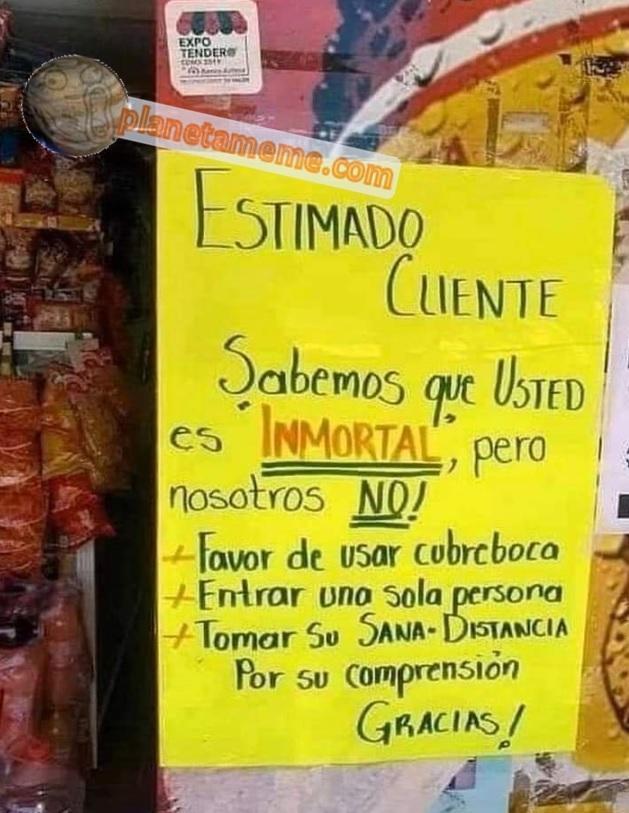 EXPO
TENDER@
CDMX 2019
Banco Azteca
planetameme.com
ESTIMADO
CLIENTE
Sabemos que USTED
es INMORTAL, pero
nosotros NO!
+ Favor de usar cubreboca
+ Entrar una sola persona
+ Tomar su SANA-DISTANCIA
Por su comprensión
GRACIAS!